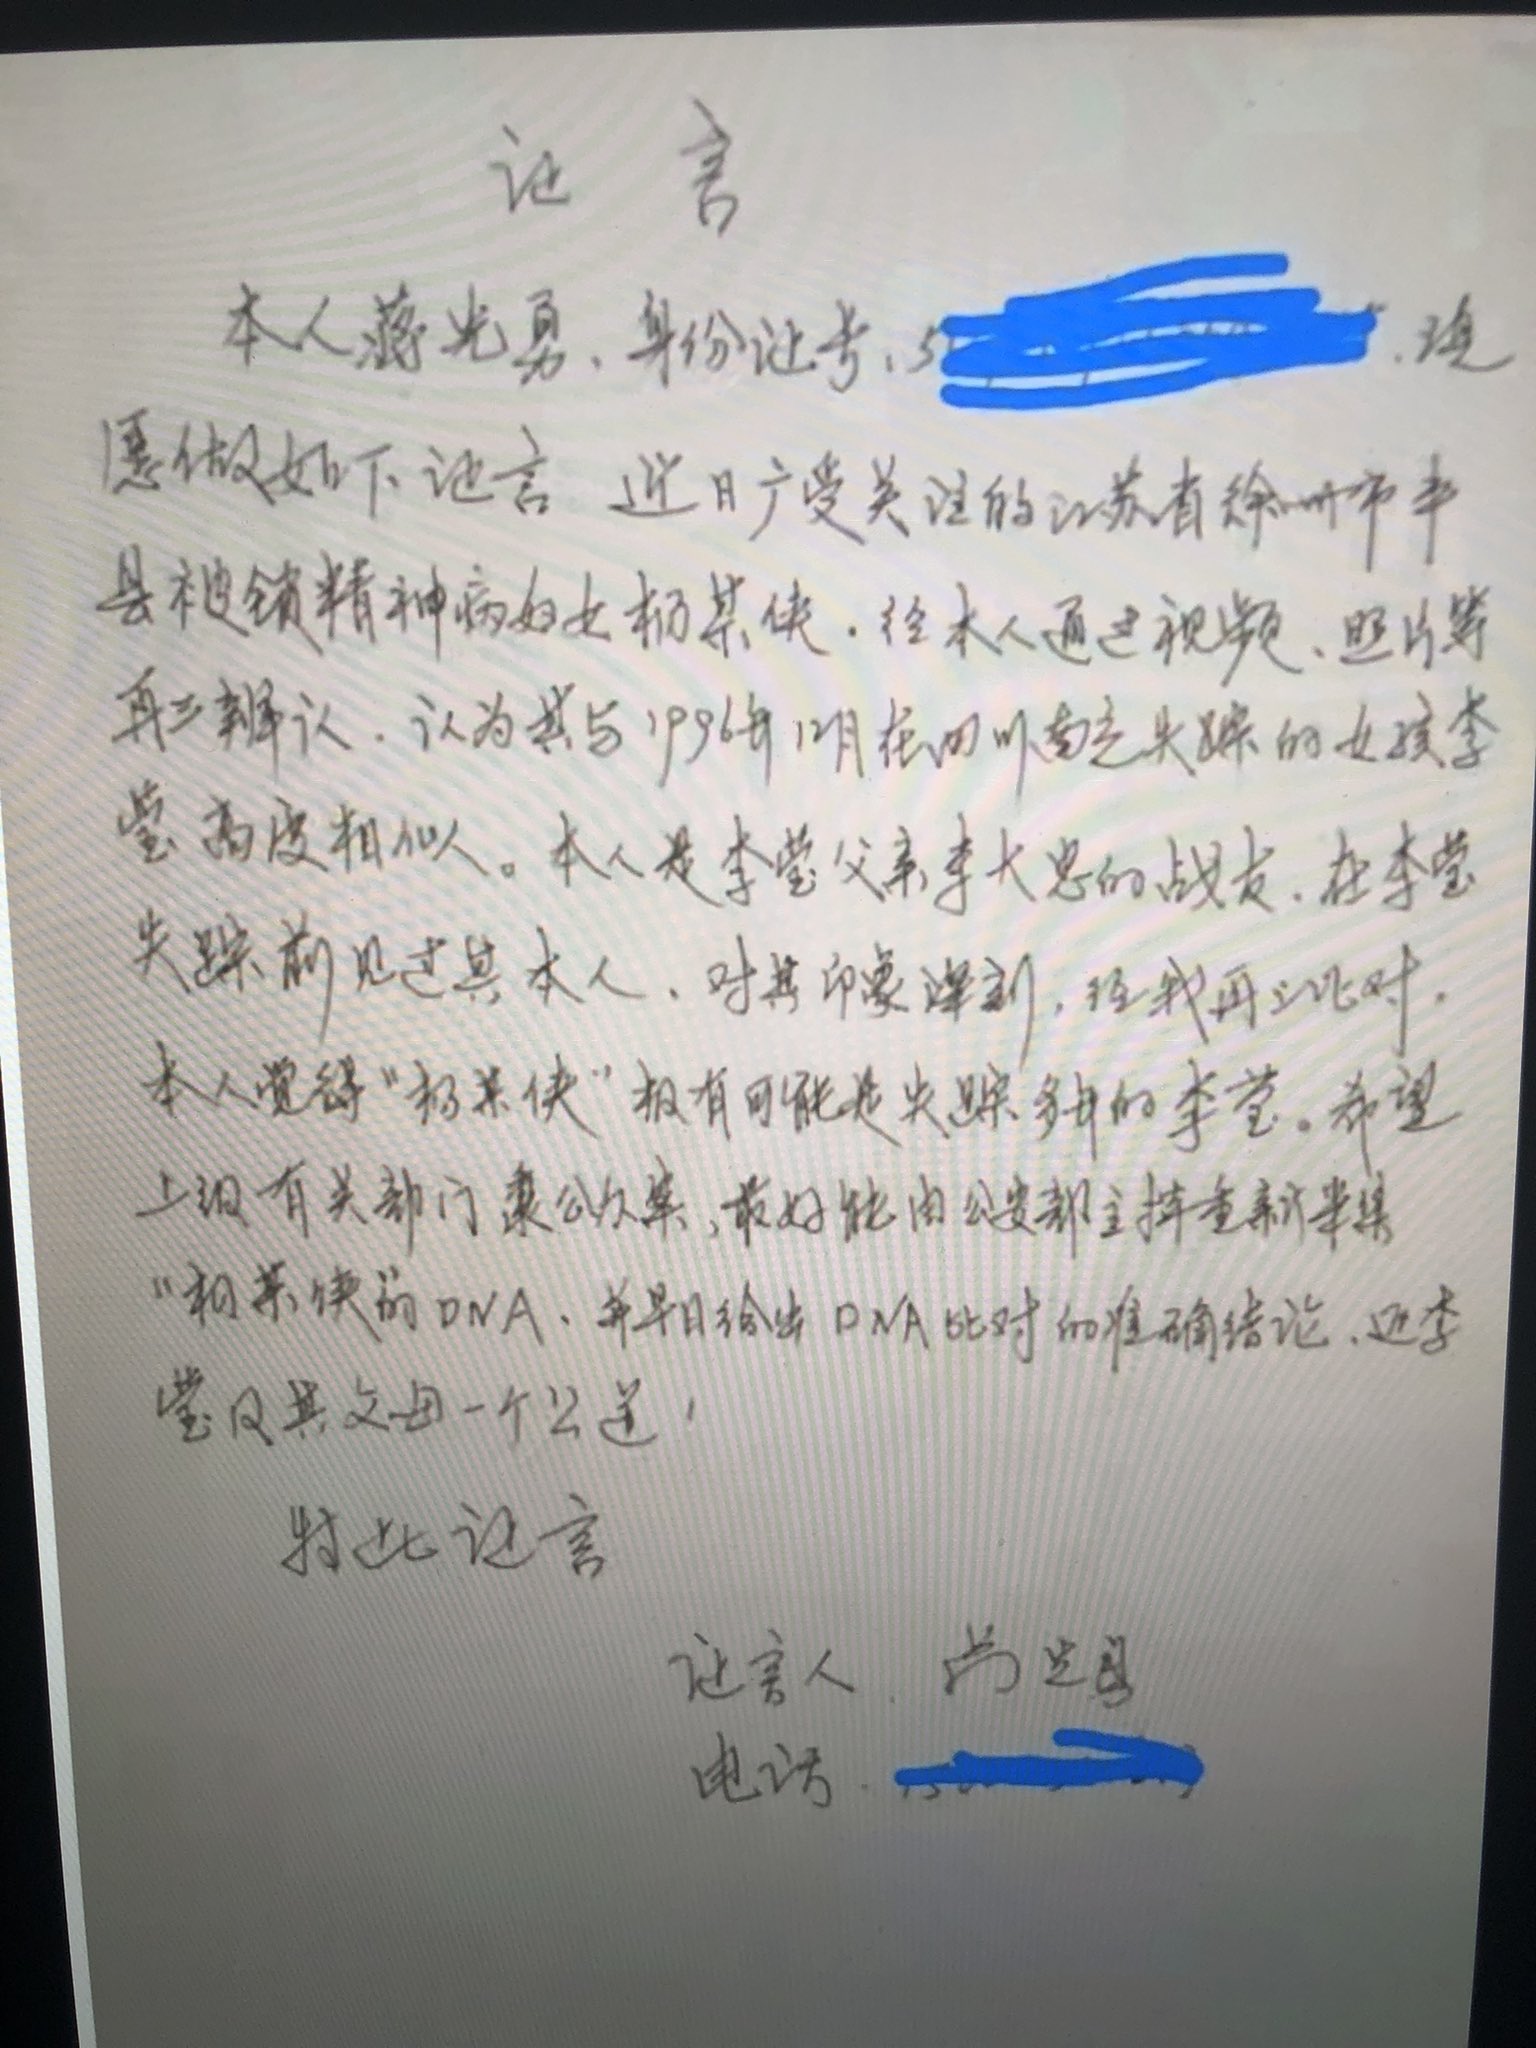 证 言
本人蒋光勇、身份证号、5 、现
愿做如下证言 近日广受关注的江苏省徐州市丰
县被锁精神病妇女杨某侠.经本人通过视频、照片等
再三辨认.认为其与1996年12月在四川南充失踪的女孩李
莹高度相似。本人是李莹父亲李大忠的战友.在李莹
失踪前见过其本人、对其印象深刻,经我再三比对.
本人觉得"杨某侠"极有可能是失踪多年的李莹。希望
上级有关部门秉公办案,最好能由公安部主持重新采集
"杨某侠"的DNA、并早日给出DNA比对的准确结论、还李
莹及其父母一个公道,
特此证言
证言人. 光勇
电话.